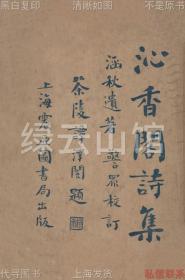 黑白复印
清晰如图
私信彩印
沁香閣詩集
涵秋遺著 警眾校訂
茶陵譚澤闓題
上海震亞圖書局出版
绿云山馆
代寻图书
上海发货
私信联系